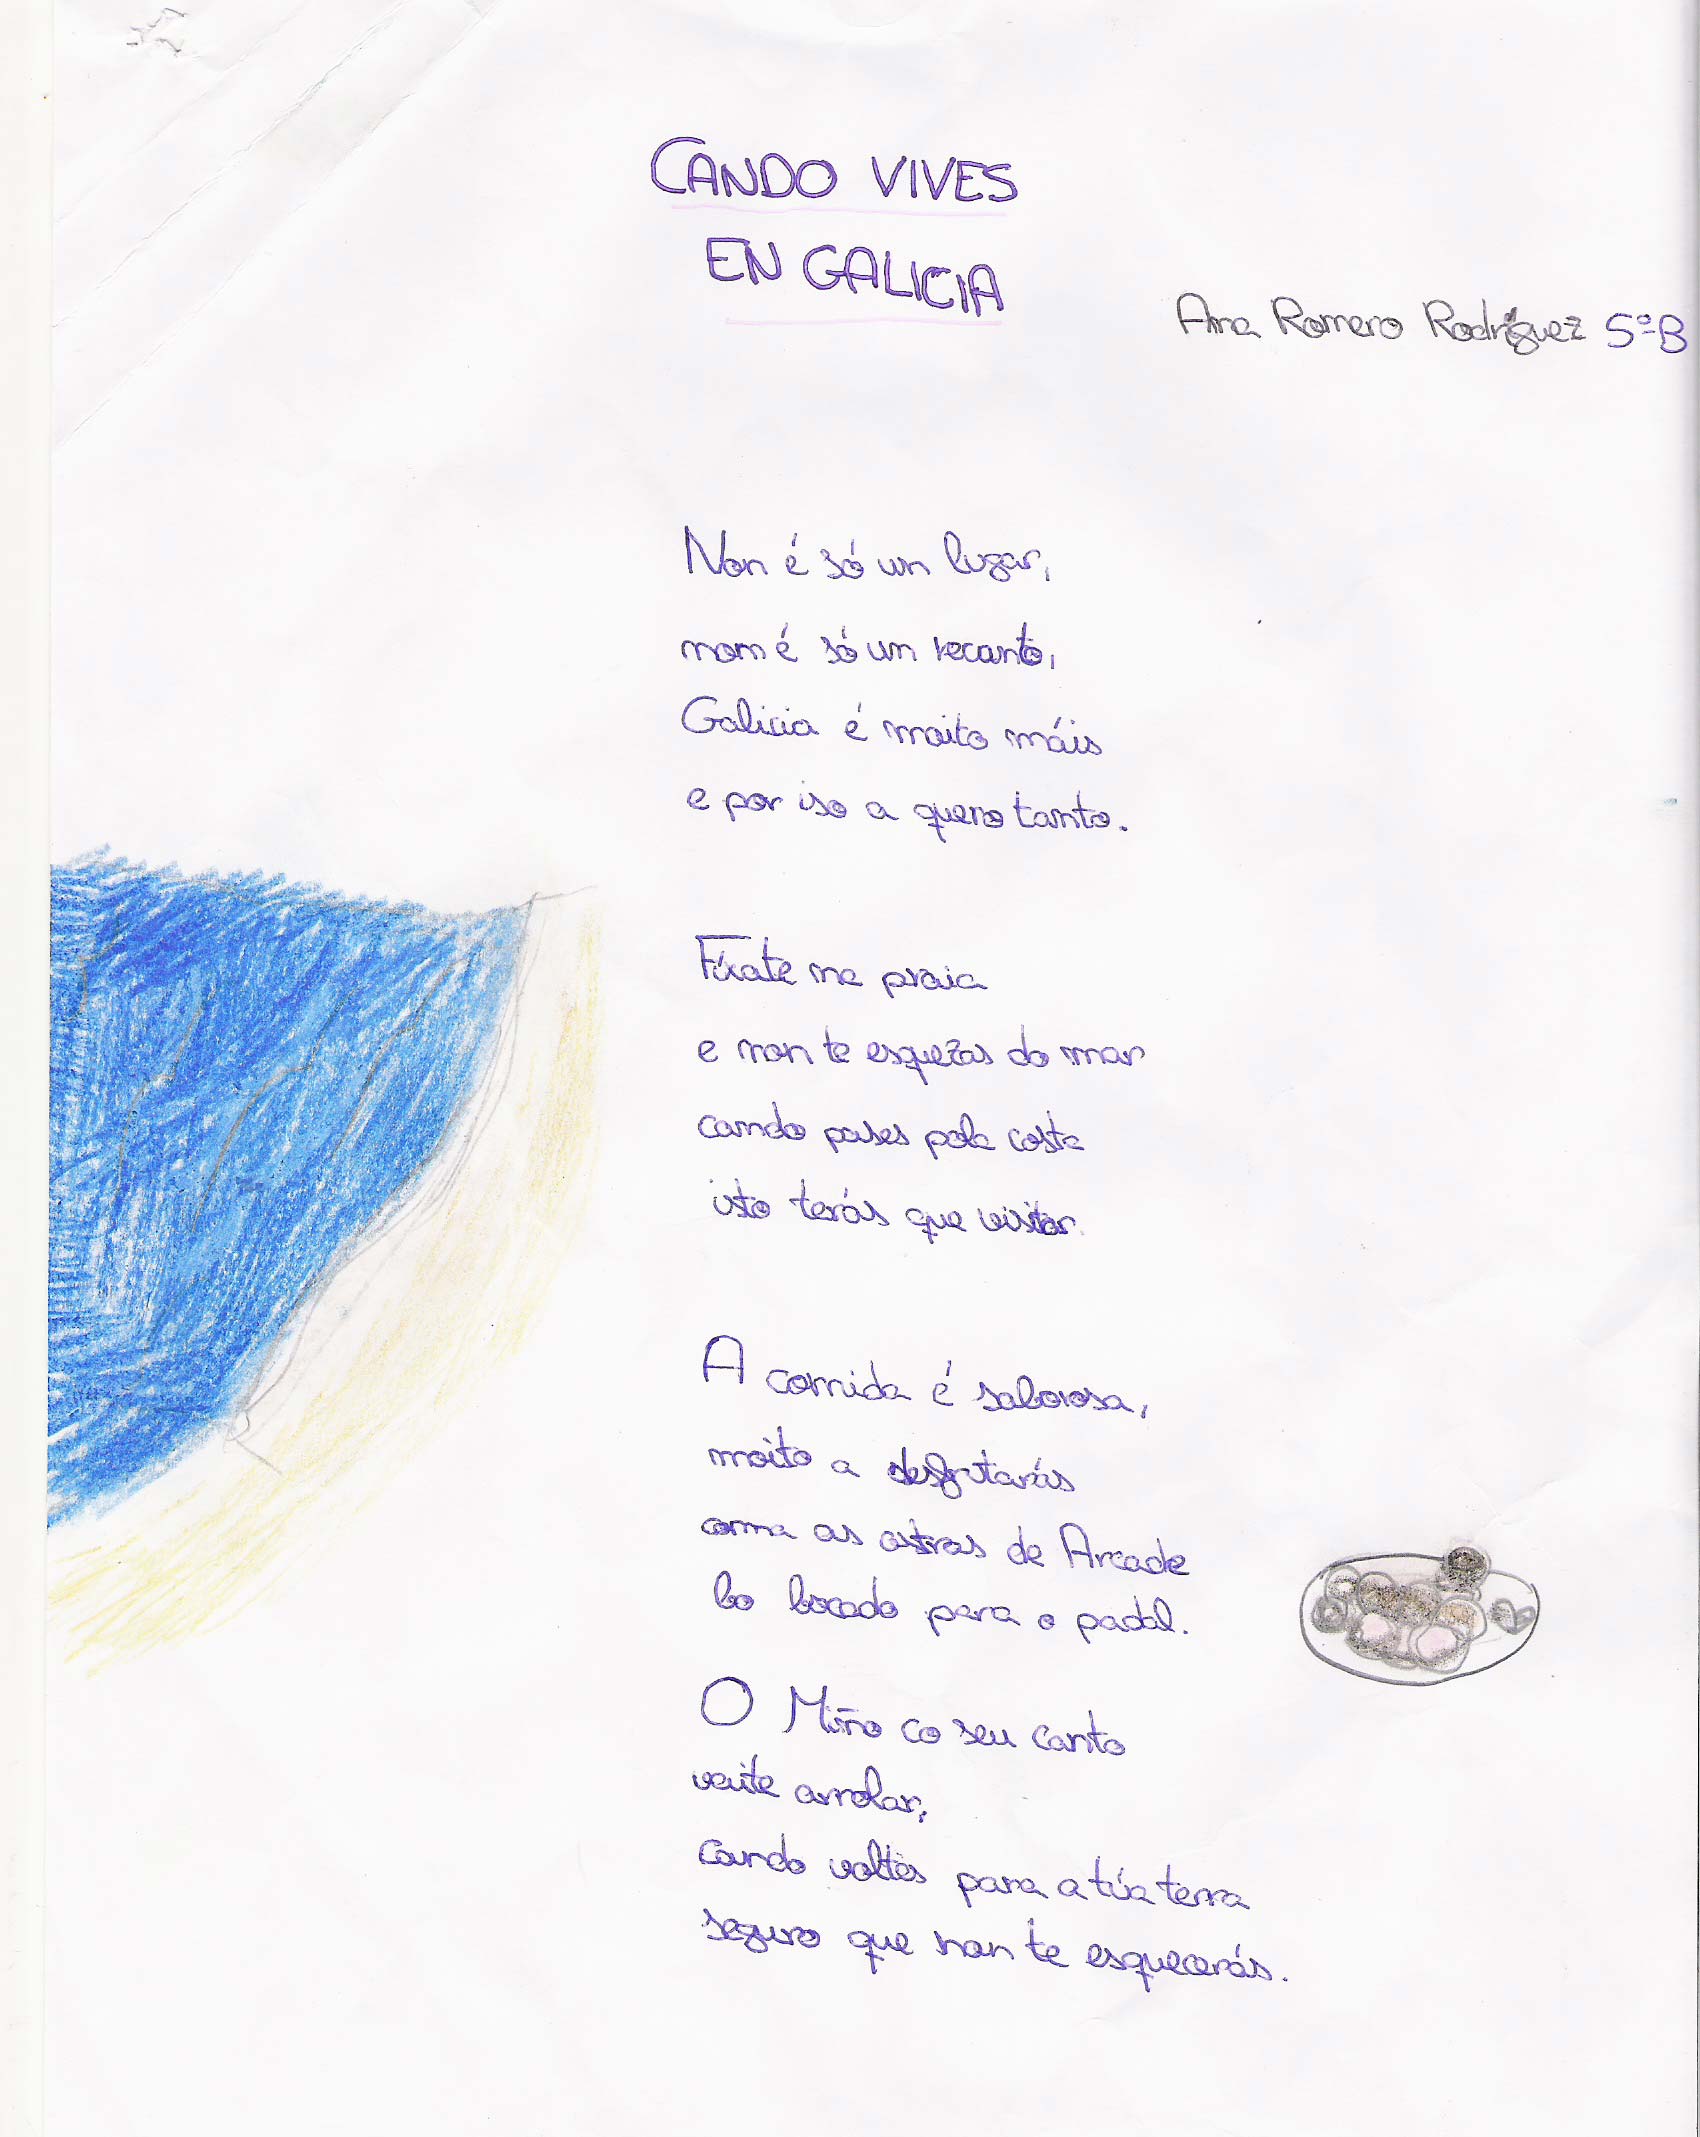 CANDO VIVES
EN GALICIA
Ana Romero Rodríguez 5º B
Non é só un lugar,
non é só un recanto,
Galicia é moito máis
e por iso a quero tanto.
Fíxate na praia
e non te esquezas do mar
cando pases pola costa
isto terás que visitar.
A comida é saborosa,
moito a desfrutarás
coma as ostras de Arcade
bo bocado para o padal.
O Miño co seu canto
vaite arrolar,
cando voltes para a túa terra
seguro que non te esquecerás.